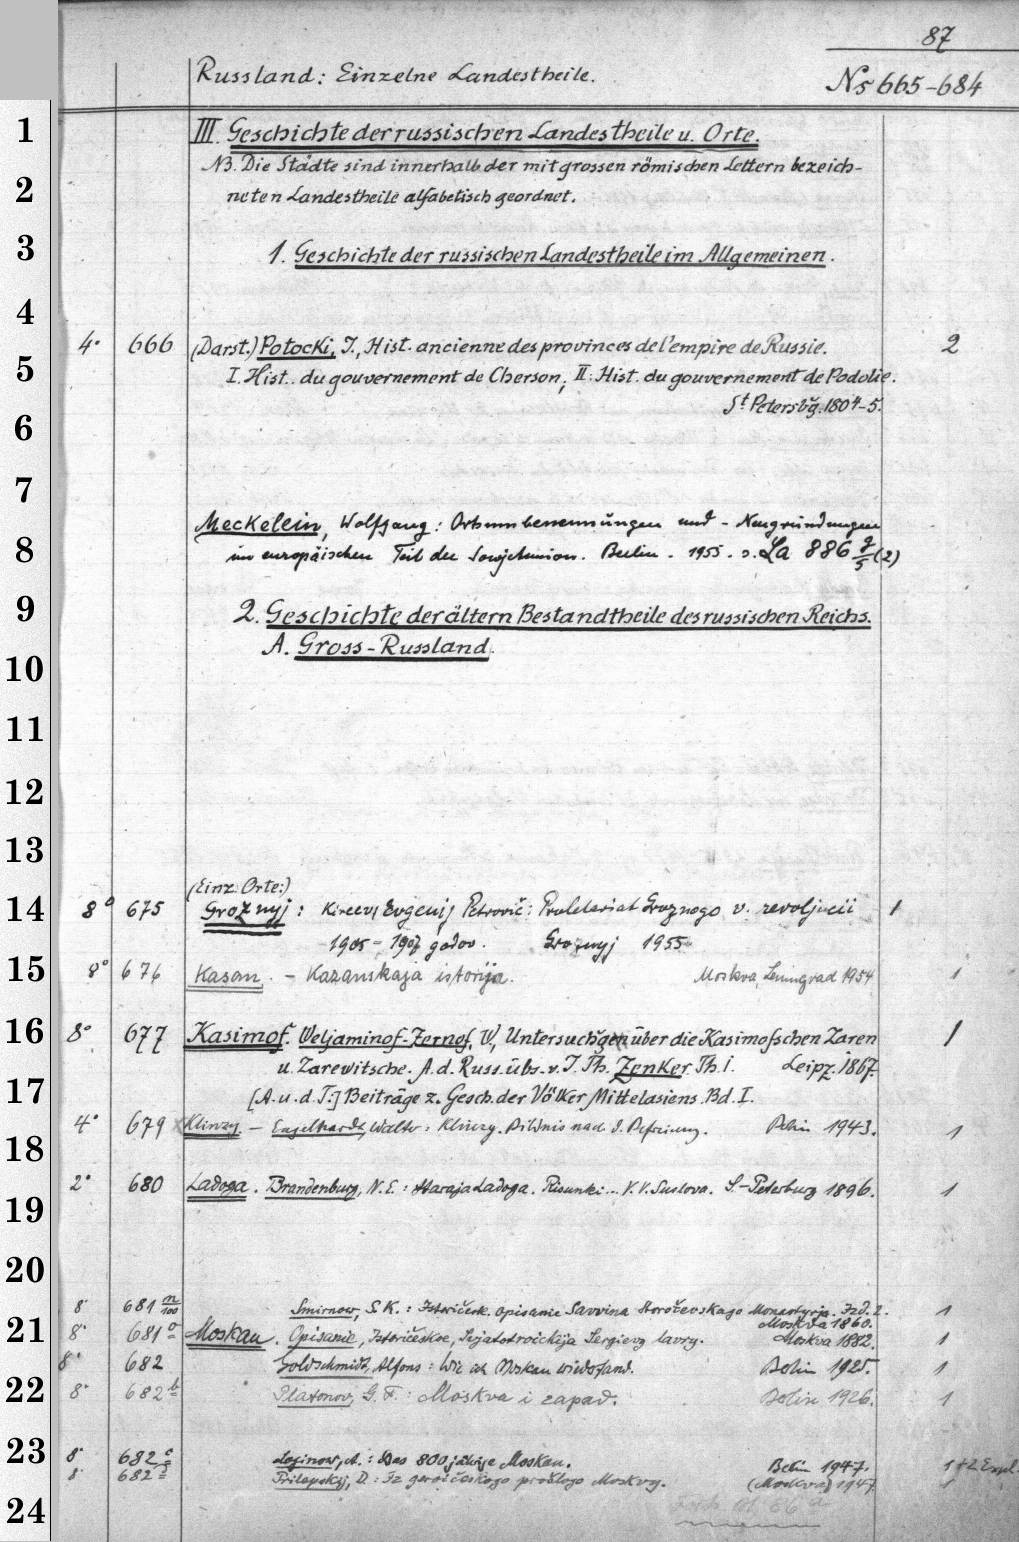 87
Russland: Einzelne Landestheile.
No 665-684
1
III. Geschichte der russischen Landestheile u. Orte.
NB. Die Städte sind innerhalb der mit grossen römischen Lettern bezeich-
2
neten Landestheile alfabetisch geordnet.
3
1. Geschichte der russischen Landestheile im Allgemeinen.
4
4° 666 (Darst.) Potocki, J., Hist. ancienne des provinces de l'empire de Russie. 2
5
I. Hist. du gouvernement de Cherson; II: Hist. du gouvernement de Podolie.
St Petersbg. 1804-5.
6
7
Meckelein, Wolfgang: Ortsumbenennungen und - Neugründungen
8
im europäischen Teil der Sowjetunion. Berlin. 1955. s. La 886 g/5 (2)
9
2. Geschichte der ältern Bestandtheile des russischen Reichs.
A. Gross-Russland.
10
11
12
13
(Einz. Orte:)
14
8° 675 Groznyj: Kireev, Evgenij Petrovič: Proletariat Groznogo v. revoljucii 1
1905-1907 godov. Groznyj 1955
15
8° 676 Kasan. - Kazanskaja istorija. Moskva, Leningrad 1954 1
16
8° 677 Kasimof. Weljaminof-Zernof, W., Untersuchgen über die Kasimofschen Zaren 1
u. Zarewitsche. A. d. Russ. übs. v. J. Th. Zenker. Th. I. Leipz. 1867.
17
[A. u. d. T:] Beiträge z. Gesch. der Völker Mittelasiens. Bd. I.
4° 679 Klinzy - Engelhardt, Walter: Klinzy. Bildnis nach d. Befreiung. Berlin 1943. 1
18
2° 680 Ladoga. Brandenburg, N. E.: Staraja Ladoga. Risunki... V. V. Suslova. S.-Peterburg 1896. 1
19
20
8° 681 n/100 Smirnow, S. K.: Istoričesk. opisanie Savvina Storoževskago Monastyrja. Izd. 2. 1
Moskva 1860.
21
8° 681 o Moskau. Opisanie, Istoričeskoe, Svjatotroickija Sergievy lavry. Moskva 1882. 1
8° 682 Goldschmidt, Alfons: Wie ich Moskau wiederfand. Berlin 1925. 1
22
8° 682 b Platonov, G. F.: Moskva i zapad. Berlin 1926. 1
23
8° 682 c Loginow, A.: Das 800 jährige Moskau. Berlin 1947. 1 +2 Expl.
8° 682 Prilepskij, D.: Iz geroičeskogo prošlogo Moskvy. (Moskva) 1947 1
24